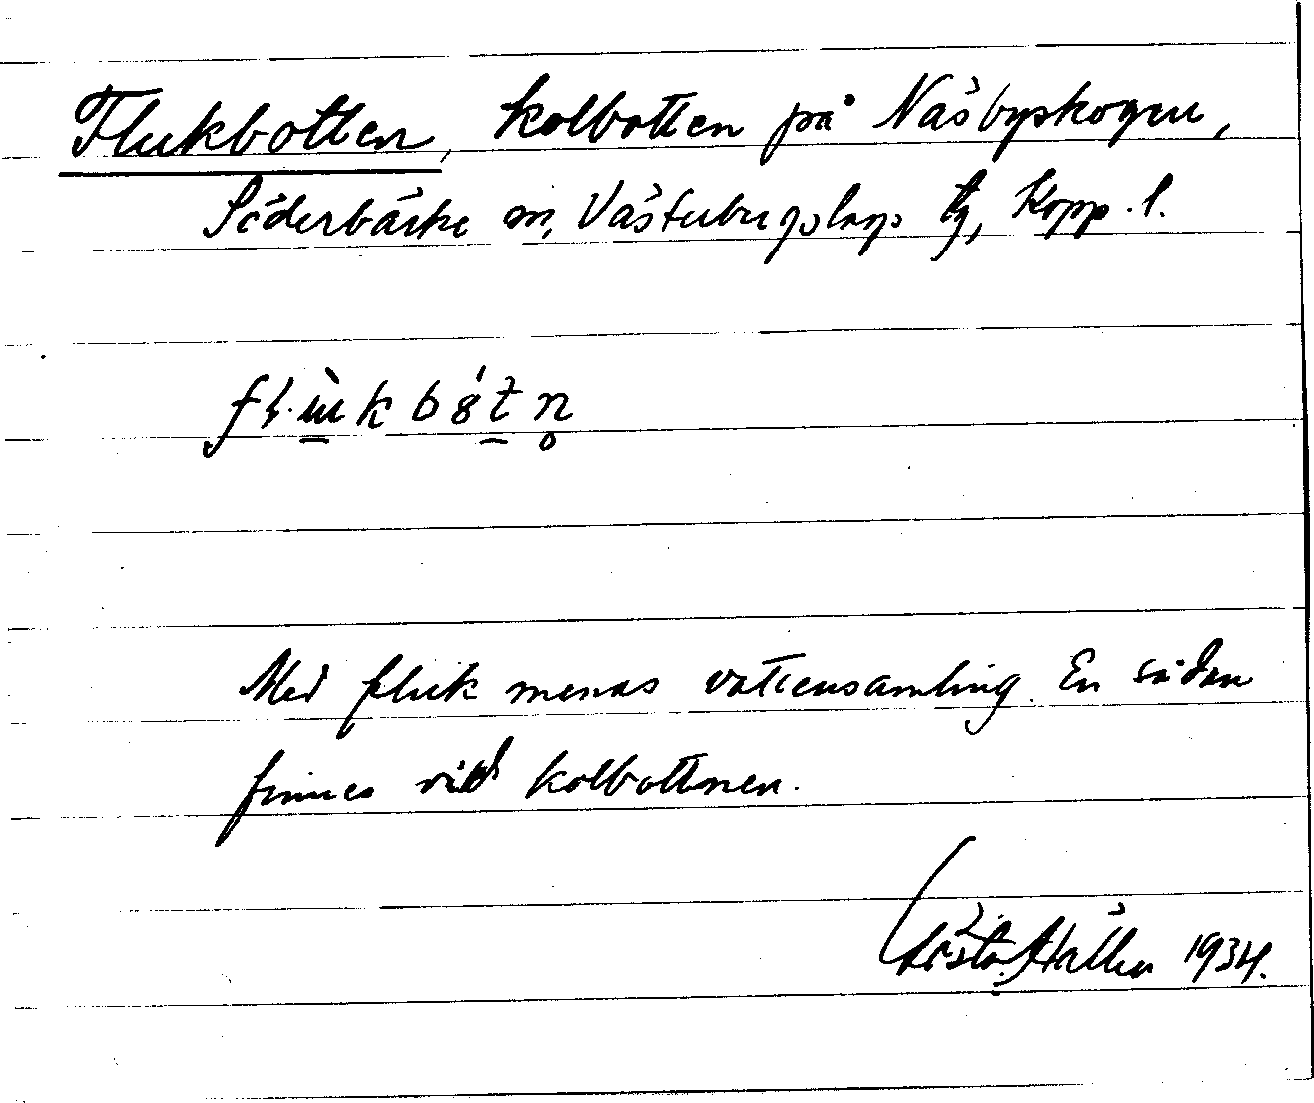 Flukbotten, kolbotten på Näsbyskogen,
Söderbärke sn, Västerbergslags tg, Kopp. l.
Med fluk menas vattensamling. En sådan
finnes vid kolbottnen.
Gösta Hallén 1934.